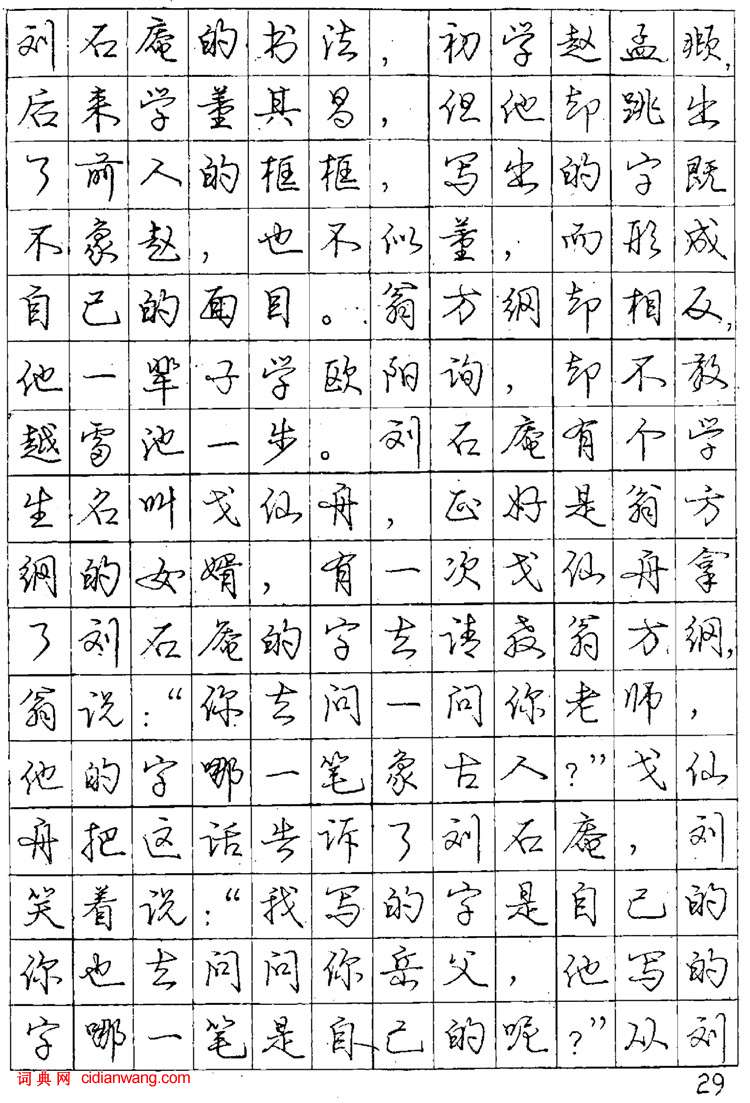 刘石庵的书法，初学赵孟頫，
后来学董其昌，但他却跳出
了前人的框框，写出的字既
不象赵，也不似董，而形成
自己的面目。翁方纲却相反，
他一辈子学欧阳询，却不敢
越雷池一步。刘石庵有个学
生名叫戈仙舟，正好是翁方
纲的女婿，有一次戈仙舟拿
了刘石庵的字去请教翁方纲，
翁说：“你去问一问你老师，
他的字哪一笔象古人？”戈仙
舟把这话告诉了刘石庵，刘
笑着说：“我写的字是自己的
你也去问问你岳父，他写的
字哪一笔是自己的呢？”从刘
词典网 cidianwang.com
29